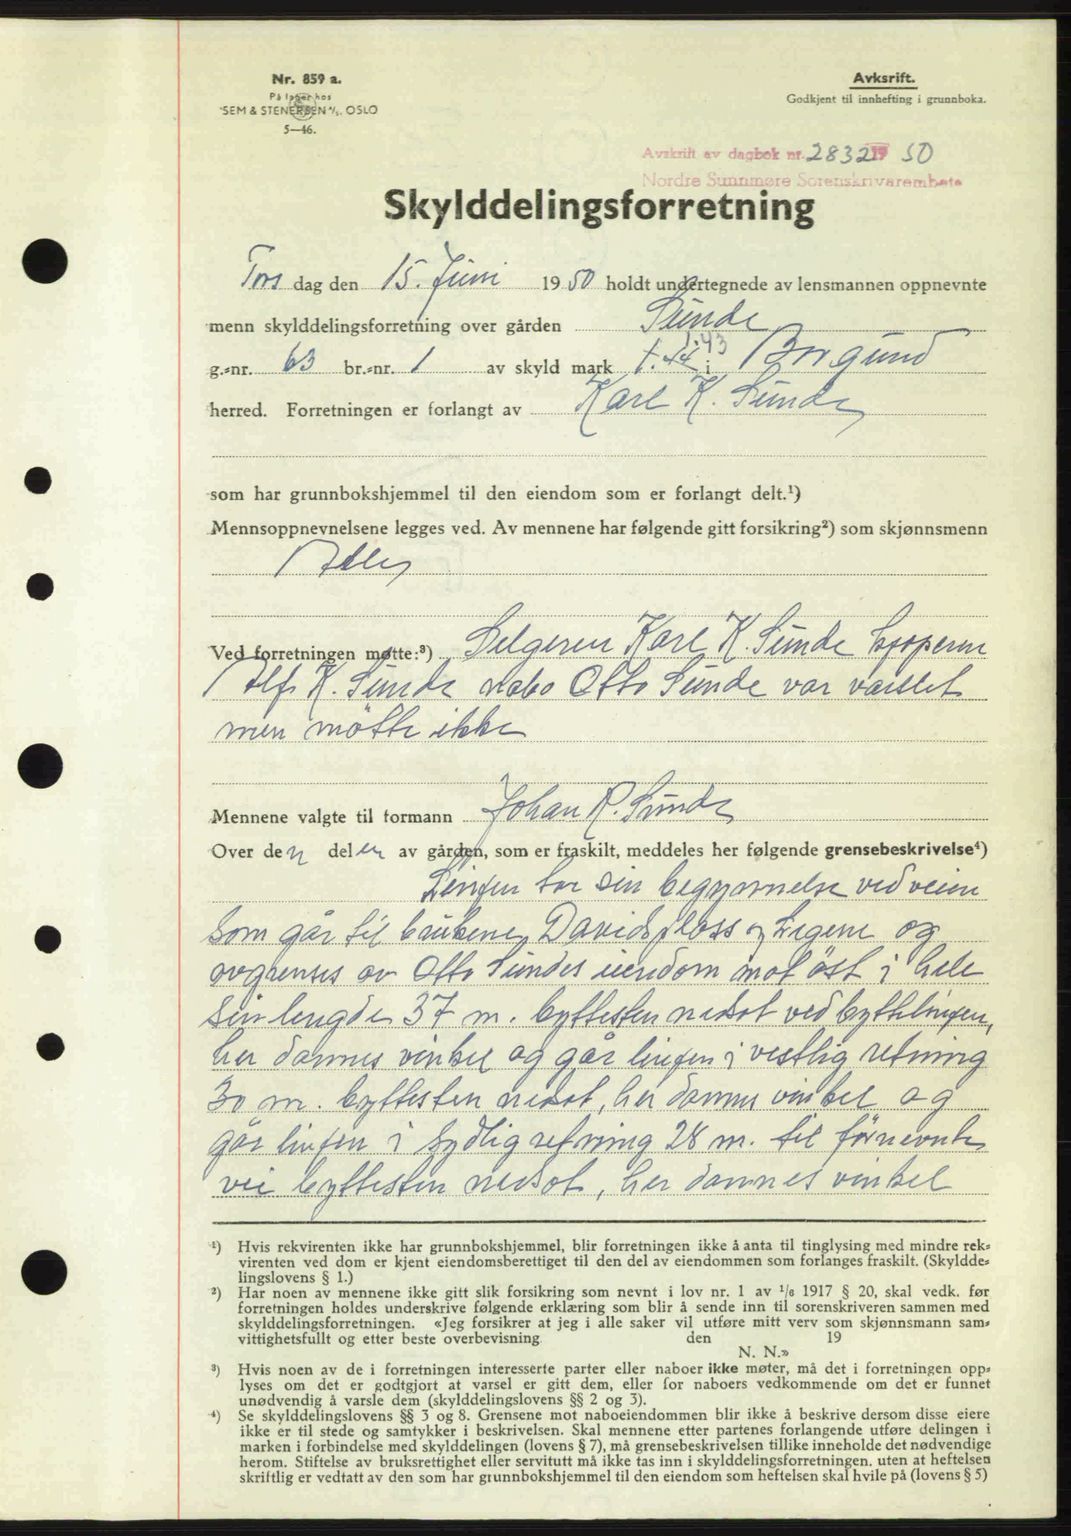 Nr. 859 a.
På lager hos
SEM & STENERSEN A/S, OSLO
5—46.
Avksrift.
Godkjent til innhefting i grunnboka.
Avskrift av dagbok nr. 2832 19 50
Nordre Sunnmøre Sorenskrivarembete
Skylddelingsforretning
Tors dag den 15. Juni 1950 holdt undertegnede av lensmannen oppnevnte
menn skylddelingsforretning over gården Sunde
1.43
g.=nr. 63 br.=nr. 1 av skyld mark 1.44 i Borgund
herred. Forretningen er forlangt av Karl K. Sunde
som har grunnbokshjemmel til den eiendom som er forlangt delt.¹)
Mennsoppnevnelsene legges ved. Av mennene har følgende gitt forsikring²) som skjønnsmenn
Alle
Ved forretningen møtte:³) Selgeren Karl K. Sunde kjøperen
Alf K. Sunde nabo Otto Sunde var varslet
men møtte ikke
Mennene valgte til formann Johan R. Sunde
Over den delen av gården, som er fraskilt, meddeles her følgende grensebeskrivelse⁴)
Linjen tar sin begynnelse ved veien
som går til brukene Davidsplass og Ligene og
avgrenses av Otto Sundes eiendom mot øst i hele
sin lengde 37 m. byttesten nedsat ved byttelinjen,
her dannes vinkel og går linjen i vestlig retning
30 m. byttesten nedsat, her dannes vinkel og
går linjen i sydlig retning 28 m. til førnevnte
vei byttesten nedsat, her dannes vinkel
¹) Hvis rekvirenten ikke har grunnbokshjemmel, blir forretningen ikke å anta til tinglysing med mindre rek=
virenten ved dom er kjent eiendomsberettiget til den del av eiendommen som forlanges fraskilt. (Skyldde=
lingslovens § 1.)
²) Har noen av mennene ikke gitt slik forsikring som nevnt i lov nr. 1 av 1/6 1917 § 20, skal vedk. før
forretningen holdes underskrive følgende erklæring som blir å sende inn til sorenskriveren sammen med
skylddelingsforretningen. «Jeg forsikrer at jeg i alle saker vil utføre mitt verv som skjønnsmann sam=
vittighetsfullt og etter beste overbevisning den 19
N. N.»
³) Hvis noen av de i forretningen interesserte parter eller naboer ikke møter, må det i forretningen opp=
lyses om det er godtgjort at varsel er gitt dem, eller for naboers vedkommende om det er funnet
unødvendig å varsle dem (skylddelingslovens §§ 2 og 3).
⁴) Se skylddelingslovens §§ 3 og 8. Grensene mot naboeiendommen blir ikke å beskrive dersom disse eiere
ikke er til stede og samtykker i beskrivelsen. Skal mennene etter partenes forlangende utføre delingen i
marken i forbindelse med skylddelingen (lovens § 7), må grensebeskrivelsen tillike inneholde det nødvendige
herom. Stiftelse av bruksrettighet eller servitutt må ikke tas inn i skylddelingsforretningen, uten at heftelsen
skriftlig er vedtatt av den som har grunnbokshjemmel til den eiendom som heftelsen skal hvile på (lovens § 5)